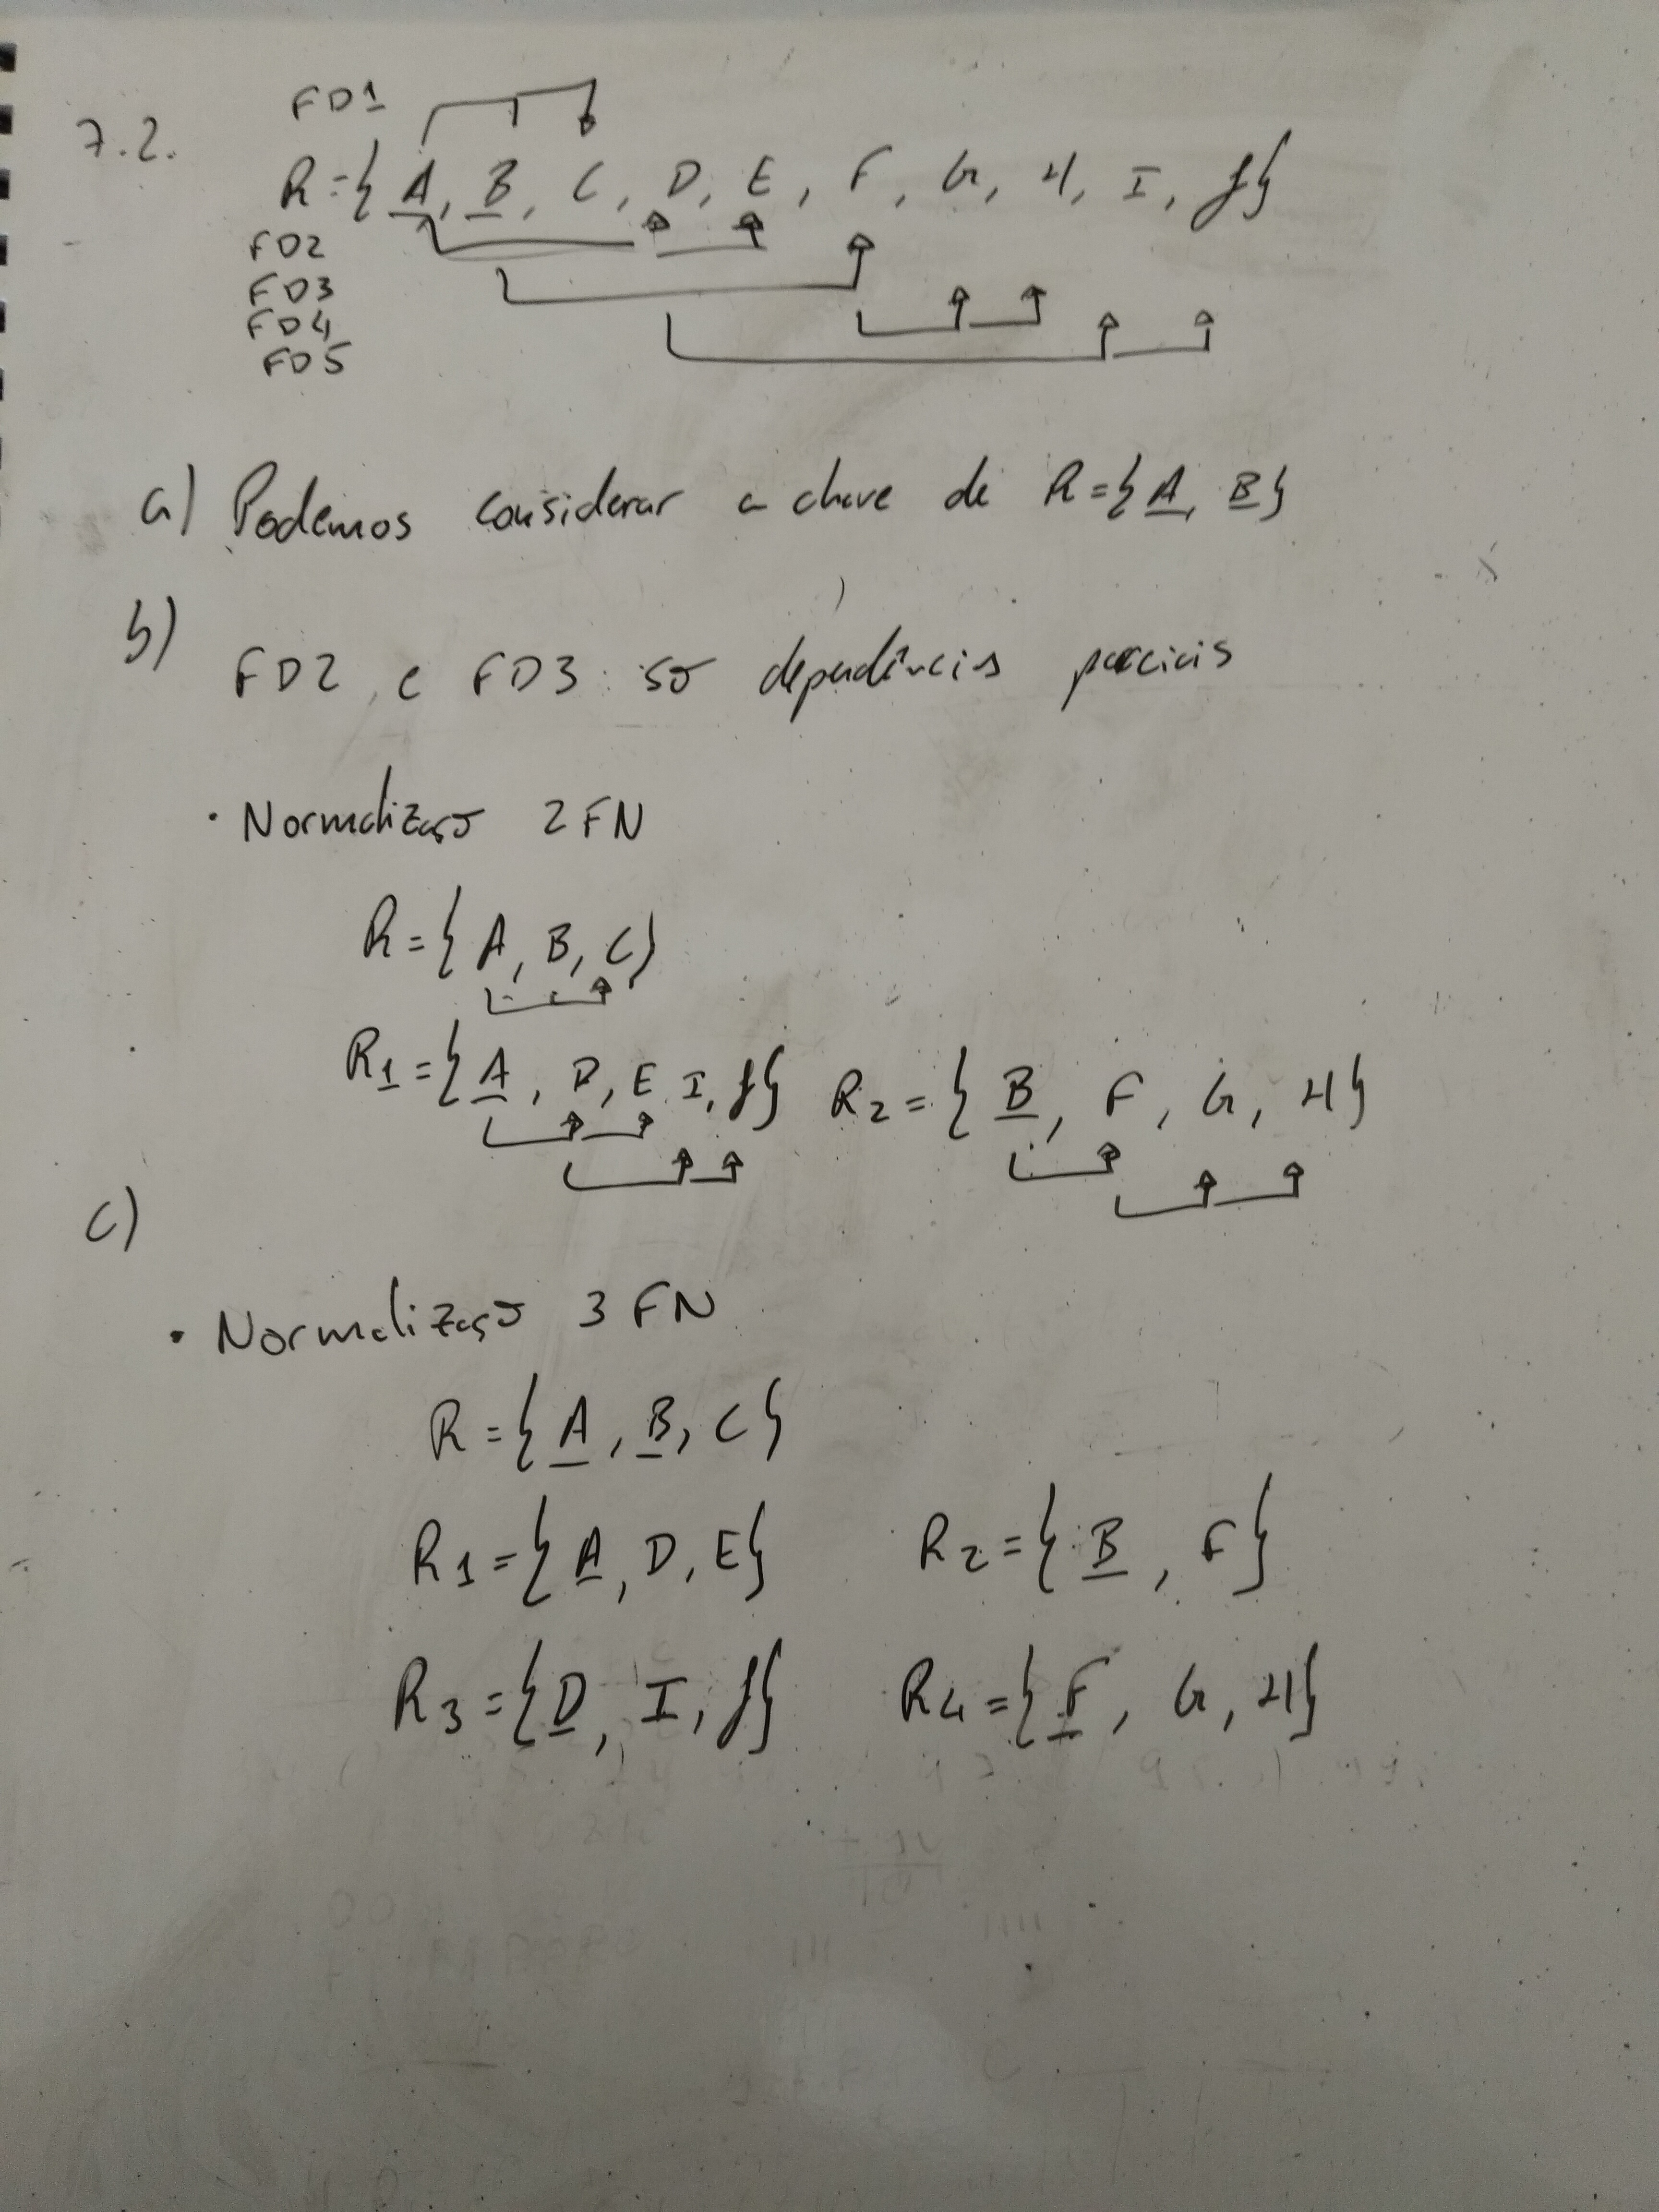 FD1
7.2.
R={ A, B, C, D, E, F, G, H, I, J}
FD2
FD3
FD4
FD5
a) Podemos considerar a chave de R={A, B}
b)
FD2 e FD3 são dependências parciais
· Normalização 2FN
R={ A, B, C}
R1={ A, D, E, I, J} R2={ B, F, G, H}
c)
· Normalização 3FN
R={ A, B, C}
R1={ A, D, E} R2={ B, F}
R3={ D, I, J} R4={ F, G, H}